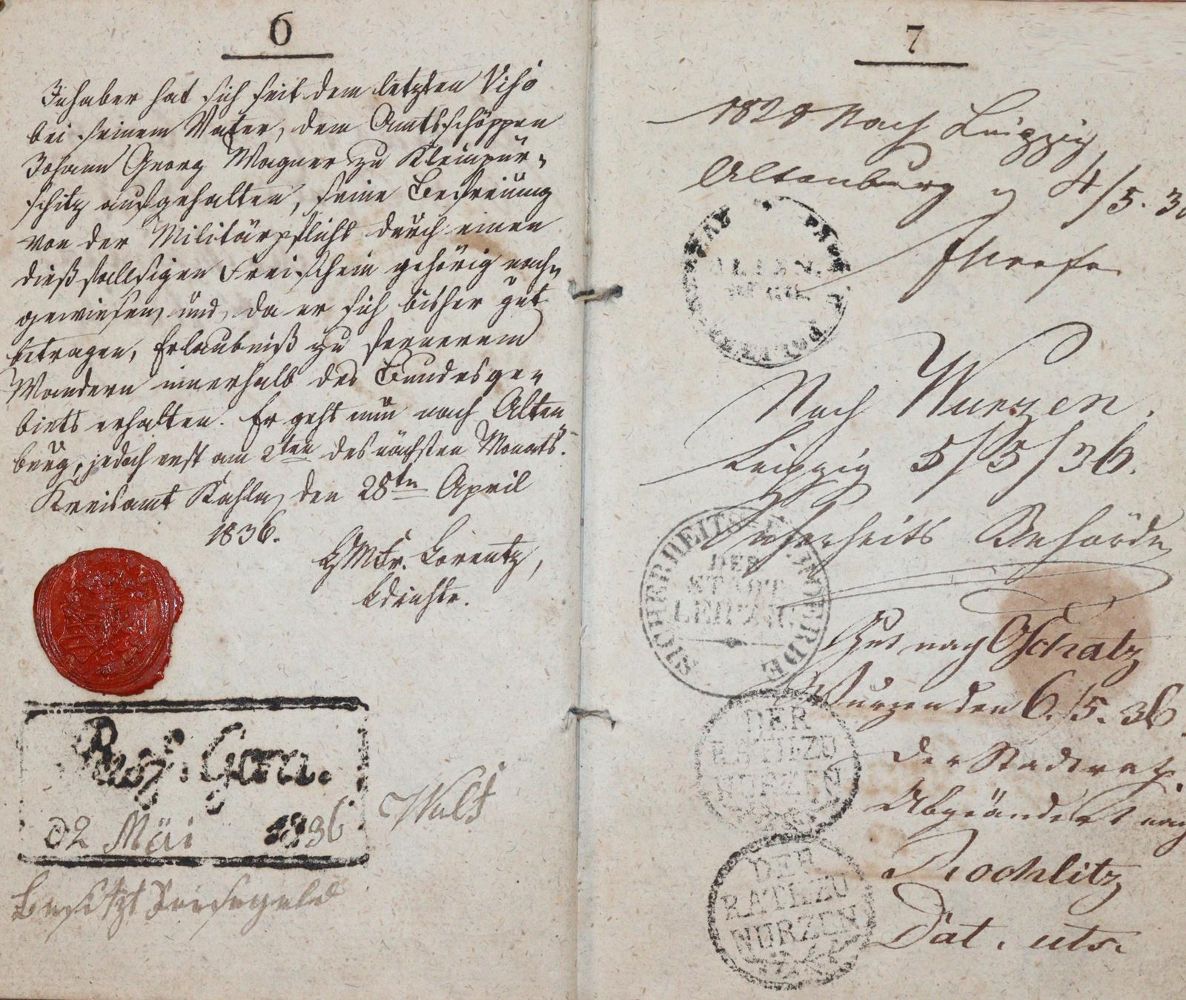 6
Inhaber hat sich seit dem letzten Viso
bei seinem Vater, dem Amtsschöppen
Johann Georg Wagner zu Kleinpür-
schitz aufgehalten, seine Befreiung
von der Militärpflicht durch einen
dießfallsigen Freischein gehörig nach-
gewiesen, und, da er sich bisher gut
betragen, Erlaubniß zu fernerem
Wandern innerhalb des Bundesge-
biets erhalten. Er geht nun nach Alten
burg, jedoch erst am 2ten des nächsten Monats.
Kreisamt Kahla, den 28tn April
1836.
Lorentz,
Prod. Gera.
02 Mai 1836
Besitzt Reisegeld
7
1828 Nach Leipzig
Altenburg 4/5. 36
ALTEN-
BURG
Nach Wurzen.
Leipzig 5/5/36.
Sicherheits Behörde
SICHERHEITS-BEHÖRDE
DER
STADT
LEIPZIG
Gut nach Oschatz
Wurzen den 6./5. 36
Der Stadtrath.
DER
RATH ZU
WURZEN
Abgeändert nach
Rochlitz
Dat. uts.
DER
RATH ZU
WURZEN